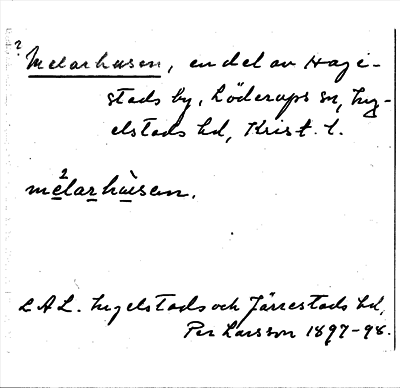 ? Melarhusen, en del av Hage-
stads by, Löderups sn, Ing-
elstads hd, Krist. l.
mèlarhùsen.
LAL. Ingelstads och Järrestads hd,
Per Larsson 1897-98.